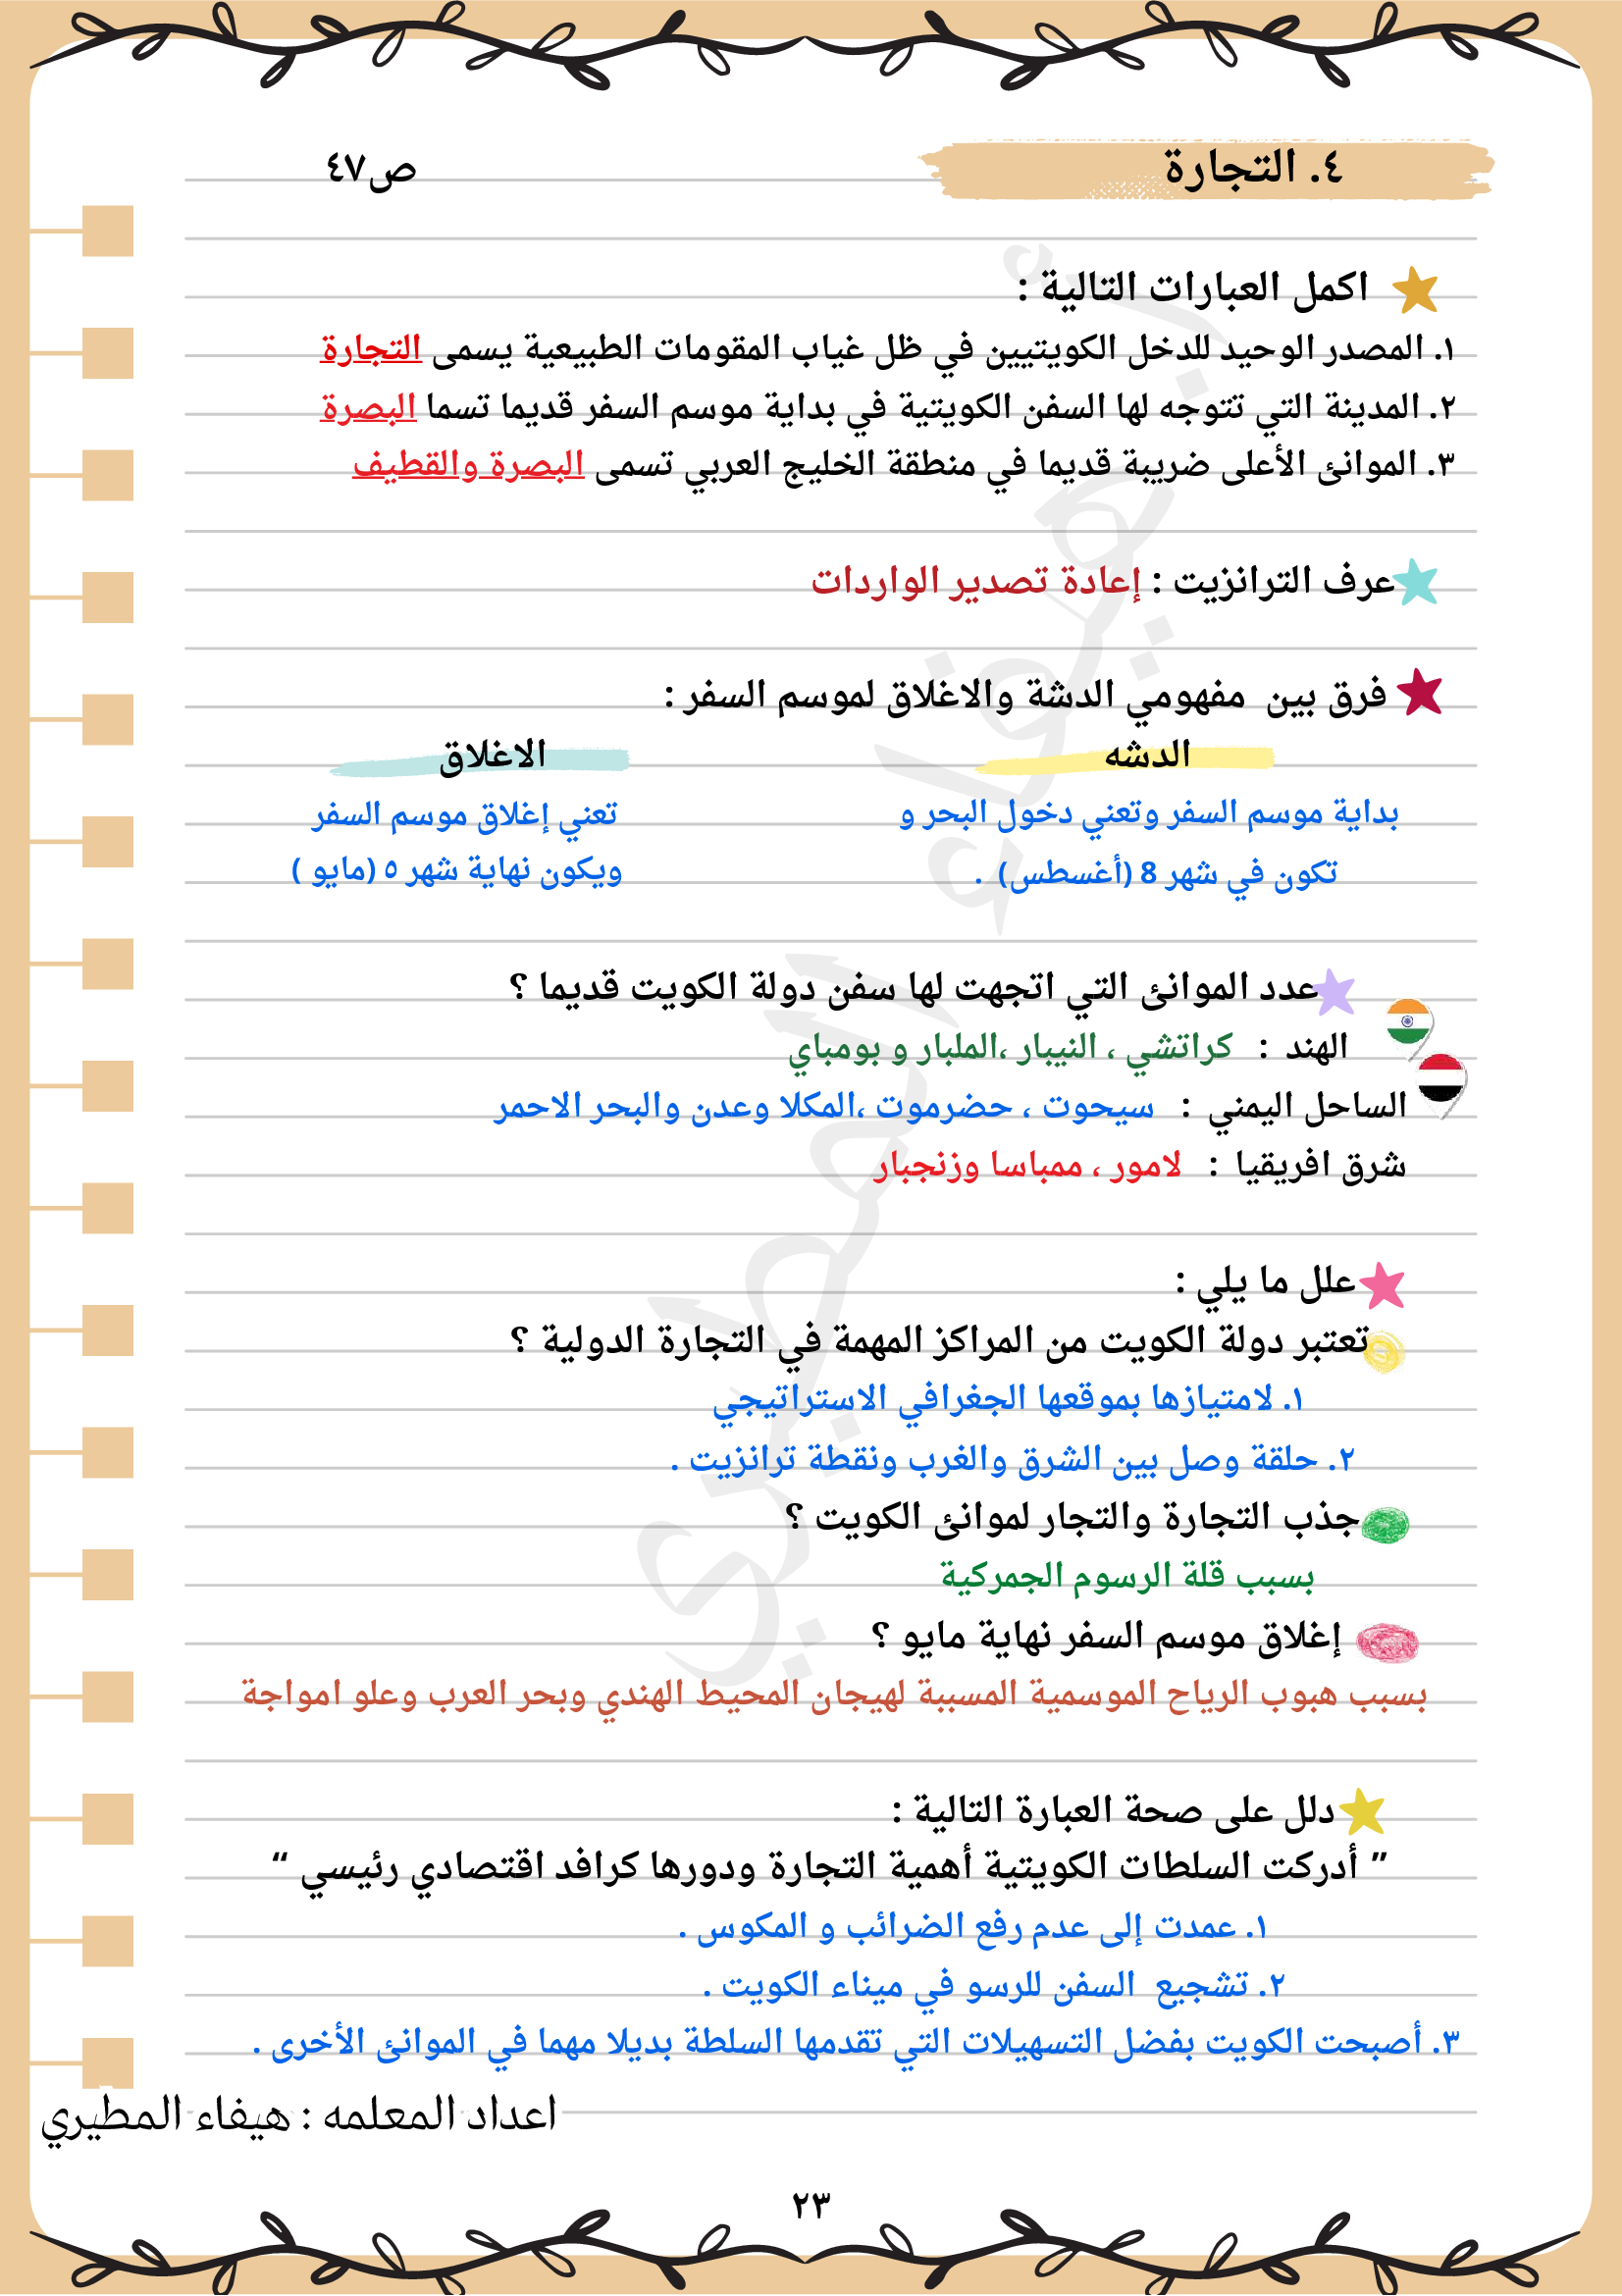 ٤. التجارة
ص٤٧
اكمل العبارات التالية :
١. المصدر الوحيد للدخل الكويتيين في ظل غياب المقومات الطبيعية يسمى التجارة
٢. المدينة التي تتوجه لها السفن الكويتية في بداية موسم السفر قديما تسما البصرة
٣. الموانئ الأعلى ضريبة قديما في منطقة الخليج العربي تسمى البصرة والقطيف
عرف الترانزيت : إعادة تصدير الواردات
فرق بين مفهومي الدشة والاغلاق لموسم السفر :
الدشه
الاغلاق
بداية موسم السفر وتعني دخول البحر و
تكون في شهر 8 (أغسطس) .
تعني إغلاق موسم السفر
ويكون نهاية شهر ٥ (مايو )
عدد الموانئ التي اتجهت لها سفن دولة الكويت قديما ؟
الهند : كراتشي ، النيبار ،الملبار و بومباي
الساحل اليمني : سيحوت ، حضرموت ،المكلا وعدن والبحر الاحمر
شرق افريقيا : لامور ، ممباسا وزنجبار
علل ما يلي :
تعتبر دولة الكويت من المراكز المهمة في التجارة الدولية ؟
١. لامتيازها بموقعها الجغرافي الاستراتيجي
٢. حلقة وصل بين الشرق والغرب ونقطة ترانزيت .
جذب التجارة والتجار لموانئ الكويت ؟
بسبب قلة الرسوم الجمركية
إغلاق موسم السفر نهاية مايو ؟
بسبب هبوب الرياح الموسمية المسببة لهيجان المحيط الهندي وبحر العرب وعلو امواجة
دلل على صحة العبارة التالية :
” أدركت السلطات الكويتية أهمية التجارة ودورها كرافد اقتصادي رئيسي “
١. عمدت إلى عدم رفع الضرائب و المكوس .
٢. تشجيع السفن للرسو في ميناء الكويت .
٣. أصبحت الكويت بفضل التسهيلات التي تقدمها السلطة بديلا مهما في الموانئ الأخرى .
اعداد المعلمه : هيفاء المطيري
٢٣
أ. هيفاء المطيري